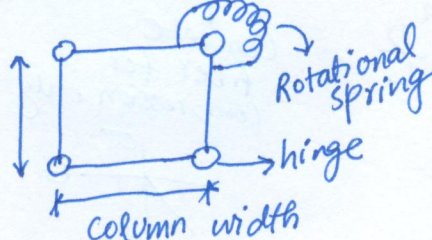 Rotational
Spring
hinge
column width